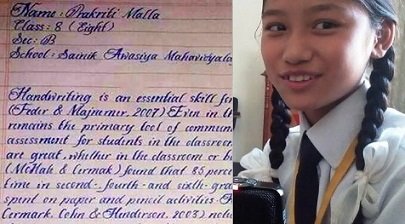 Name: Prakriti Malla
Class: 8 (Eight)
Sec: B
School: Sainik Awasiya Mahavidyala
Handwriting is an essential skill for
(Feder & Majnemer, 2007) Even in th
remains the primary tool of communi
assessment for students in the classroom
are great, whether in the classroom or b
(McHale & Cermak) found that 85 perc
time in second-, fourth- and sixth- gra
spent on paper and pencil activities.
Cermark, Cohn & Henderson, 2003), note